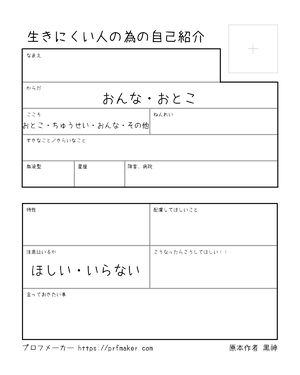 生きにくい人の為の自己紹介
なまえ
からだ
おんな・おとこ
こころ
ねんれい
おとこ・ちゅうせい・おんな・その他
すきなこと／きらいなこと
血液型
星座
障害、病院
特性
配慮してほしいこと
注意はいるか
こうなったらこうしてほしい！！
ほしい・いらない
言っておきたい事
プロフメーカー https://prfmaker.com
原本作者 黒神